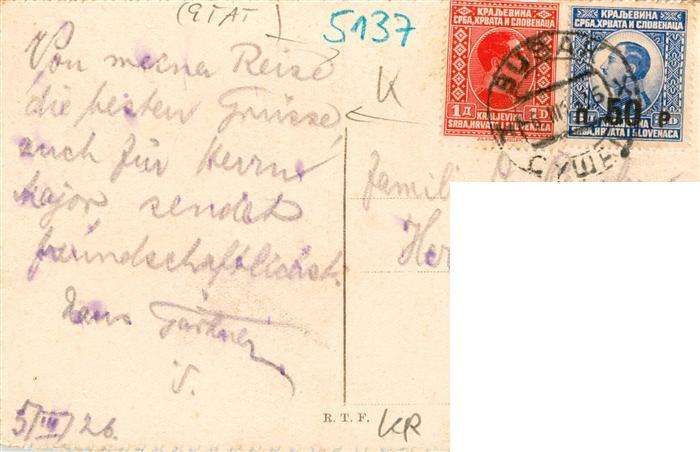 (STAT)
5137
Von meiner Reise
die besten Grüsse,
auch für Herrn
Major, sendet
freundschaftlichst
Hans Gärtner
5/III/26.
K
КРАЉЕВИНА
СРБА, ХРВАТА И СЛОВЕНАЦА
1Д 1D
KRALJEVINA
SRBA, HRVATA I SLOVENACA
КРАЉЕВИНА
СРБА, ХРВАТА И СЛОВЕНАЦА
П 50 Р
KRALJEVINA
SRBA, HRVATA I SLOVENACA
Famili
Her
R. T. F.
KR